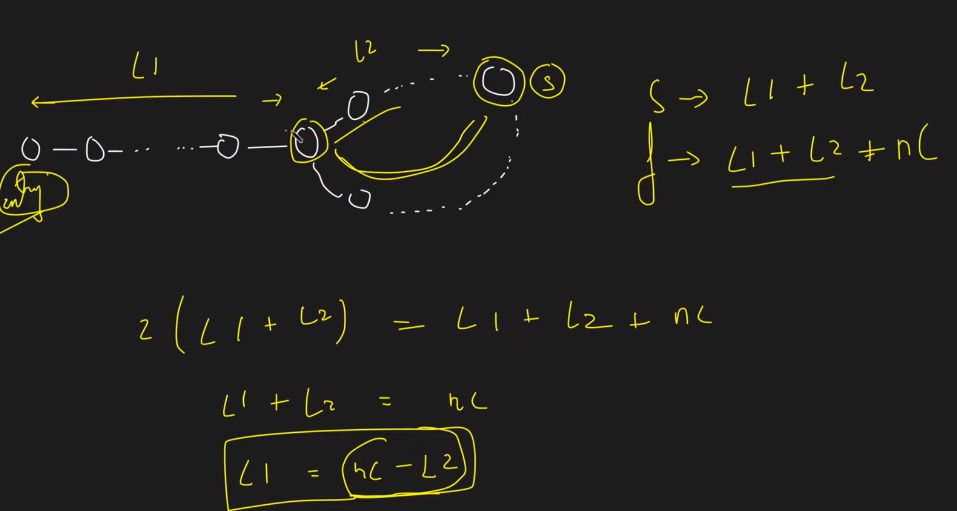 L1
L2
S
entry
S → L1 + L2
f → L1 + L2 + nC
2 (L1 + L2) = L1 + L2 + nC
L1 + L2 = nC
L1 = nC - L2